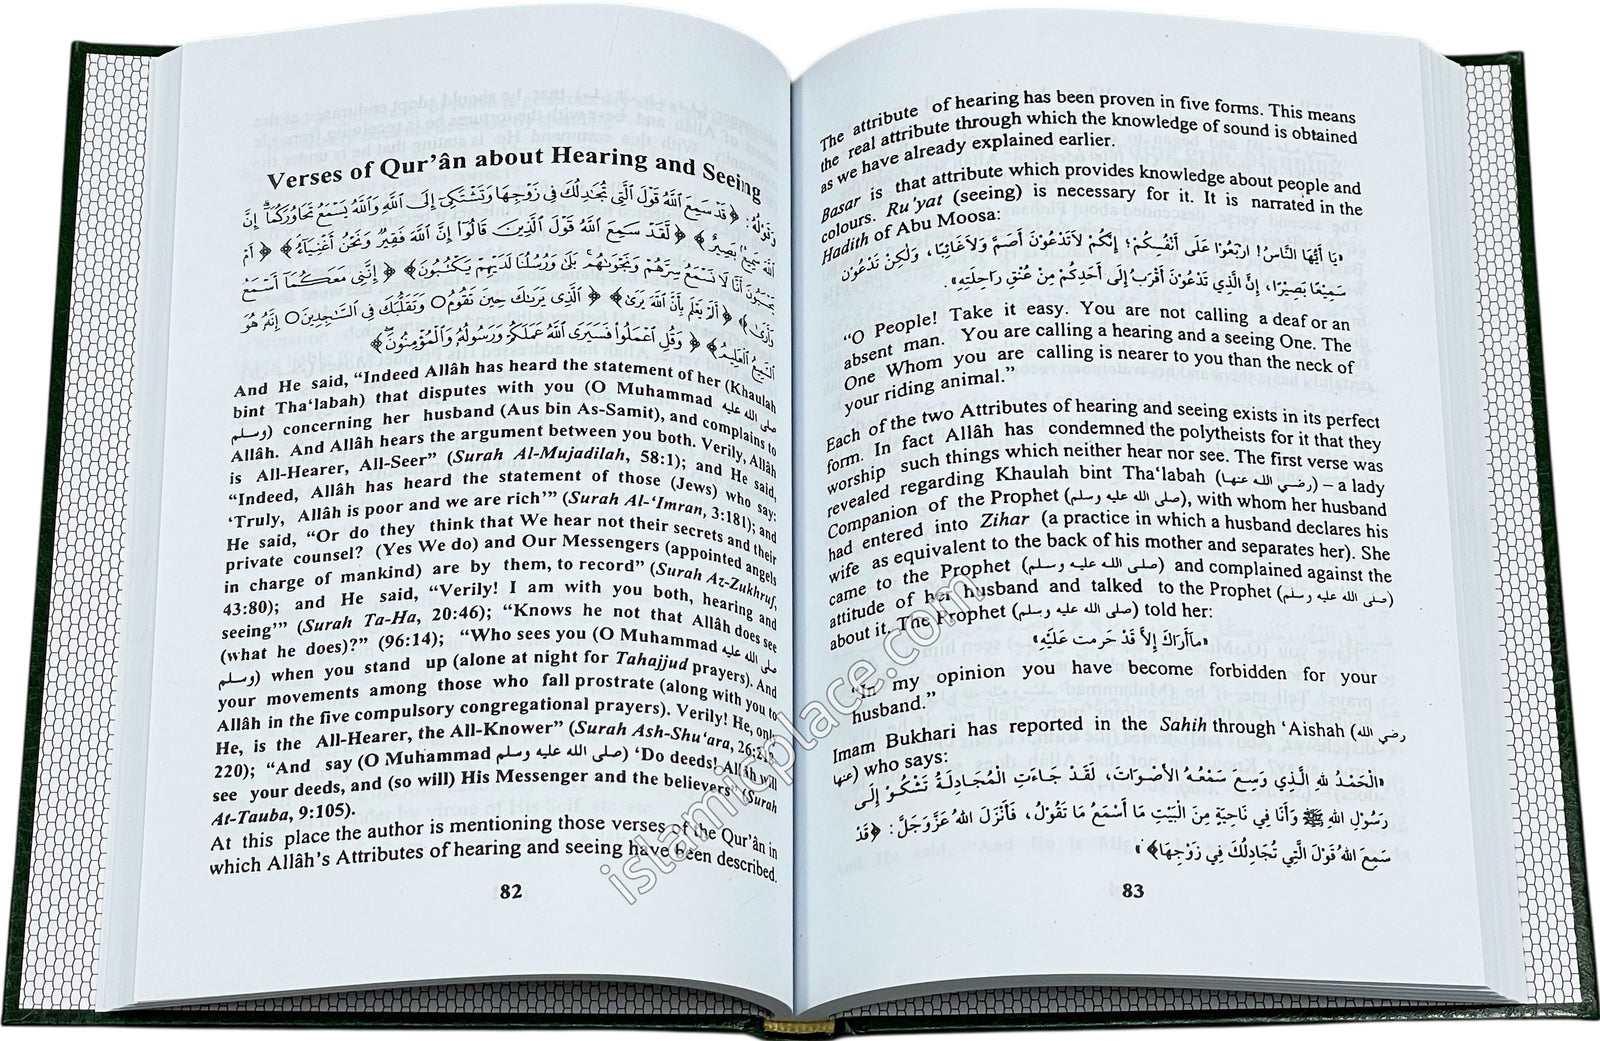 Verses of Qur’ân about Hearing and Seeing
وَقَوْلُهُ: ﴿قَدْ سَمِعَ ٱللَّهُ قَوْلَ ٱلَّتِى تُجَٰدِلُكَ فِى زَوْجِهَا وَتَشْتَكِىٓ إِلَى ٱللَّهِ وَٱللَّهُ يَسْمَعُ تَحَاوُرَكُمَآ إِنَّ
ٱللَّهَ سَمِيعٌۢ بَصِيرٌ﴾ ﴿لَّقَدْ سَمِعَ ٱللَّهُ قَوْلَ ٱلَّذِينَ قَالُوٓا۟ إِنَّ ٱللَّهَ فَقِيرٌ وَنَحْنُ أَغْنِيَآءُ﴾ ﴿أَمْ
يَحْسَبُونَ أَنَّا لَا نَسْمَعُ سِرَّهُمْ وَنَجْوَىٰهُم بَلَىٰ وَرُسُلُنَا لَدَيْهِمْ يَكْتُبُونَ﴾ ﴿إِنَّنِى مَعَكُمَآ أَسْمَعُ
وَأَرَىٰ﴾ ﴿أَلَمْ يَعْلَم بِأَنَّ ٱللَّهَ يَرَىٰ﴾ ﴿ٱلَّذِى يَرَىٰكَ حِينَ تَقُومُ ○ وَتَقَلُّبَكَ فِى ٱلسَّٰجِدِينَ ○ إِنَّهُۥ هُوَ
ٱلسَّمِيعُ ٱلْعَلِيمُ﴾ ﴿وَقُلِ ٱعْمَلُوا۟ فَسَيَرَى ٱللَّهُ عَمَلَكُمْ وَرَسُولُهُۥ وَٱلْمُؤْمِنُونَ﴾
And He said, “Indeed Allâh has heard the statement of her (Khaulah
bint Tha‘labah) that disputes with you (O Muhammad صلى الله عليه
وسلم) concerning her husband (Aus bin As-Samit), and complains to
Allâh. And Allâh hears the argument between you both. Verily, Allâh
is All-Hearer, All-Seer” (Surah Al-Mujadilah, 58:1); and He said,
“Indeed, Allâh has heard the statement of those (Jews) who say:
‘Truly, Allâh is poor and we are rich’” (Surah Al-‘Imran, 3:181); and
He said, “Or do they think that We hear not their secrets and their
private counsel? (Yes We do) and Our Messengers (appointed angels
in charge of mankind) are by them, to record” (Surah Az-Zukhruf,
43:80); and He said, “Verily! I am with you both, hearing and
seeing’” (Surah Ta-Ha, 20:46); “Knows he not that Allâh does see
(what he does)?” (96:14); “Who sees you (O Muhammad صلى الله عليه
وسلم) when you stand up (alone at night for Tahajjud prayers). And
your movements among those who fall prostrate (along with you to
Allâh in the five compulsory congregational prayers). Verily! He, only
He, is the All-Hearer, the All-Knower” (Surah Ash-Shu‘ara, 26:218-
220); “And say (O Muhammad صلى الله عليه وسلم) ‘Do deeds! Allâh will
see your deeds, and (so will) His Messenger and the believers” (Surah
At-Tauba, 9:105).
At this place the author is mentioning those verses of the Qur’ân in
which Allâh’s Attributes of hearing and seeing have been described.
82
The attribute of hearing has been proven in five forms. This means
the real attribute through which the knowledge of sound is obtained
as we have already explained earlier.
Basar is that attribute which provides knowledge about people and
colours. Ru’yat (seeing) is necessary for it. It is narrated in the
Hadith of Abu Moosa:
«يَا أَيُّهَا النَّاسُ! ارْبَعُوْا عَلَى أَنْفُسِكُمْ؛ إِنَّكُمْ لَاتَدْعُوْنَ أَصَمَّ وَلَاغَائِبًا، وَلَكِنْ تَدْعُوْنَ
سَمِيْعًا بَصِيْرًا، إِنَّ الَّذِي تَدْعُوْنَ أَقْرَبُ إِلَى أَحَدِكُمْ مِنْ عُنُقِ رَاحِلَتِهِ».
“O People! Take it easy. You are not calling a deaf or an
absent man. You are calling a hearing and a seeing One. The
One Whom you are calling is nearer to you than the neck of
your riding animal.”
Each of the two Attributes of hearing and seeing exists in its perfect
form. In fact Allâh has condemned the polytheists for it that they
worship such things which neither hear nor see. The first verse was
revealed regarding Khaulah bint Tha‘labah (رضي الله عنها) – a lady
Companion of the Prophet (صلى الله عليه وسلم), with whom her husband
had entered into Zihar (a practice in which a husband declares his
wife as equivalent to the back of his mother and separates her). She
came to the Prophet (صلى الله عليه وسلم) and complained against the
attitude of her husband and talked to the Prophet (صلى الله عليه وسلم)
about it. The Prophet (صلى الله عليه وسلم) told her:
«مَاأَرَاكَ إِلاَّ قَدْ حَرمت عَلَيْهِ»
“In my opinion you have become forbidden for your
husband.”
Imam Bukhari has reported in the Sahih through ‘Aishah (رضي الله
عنها) who says:
«الْحَمْدُ للهِ الَّذِي وَسِعَ سَمْعُهُ الأَصْوَاتَ، لَقَدْ جَاءَتِ الْمُجَادِلَةُ تَشْكُوْ إِلَى
رَسُوْلِ اللهِ ﷺ وَأَنَا فِي نَاحِيَةٍ مِنَ الْبَيْتِ مَا أَسْمَعُ مَا تَقُوْلُ، فَأَنْزَلَ اللهُ عَزَّوَجَلَّ: ﴿قَدْ
سَمِعَ اللهُ قَوْلَ الَّتِي تُجَادِلُكَ فِي زَوْجِهَا﴾»
83
islamicplace.com